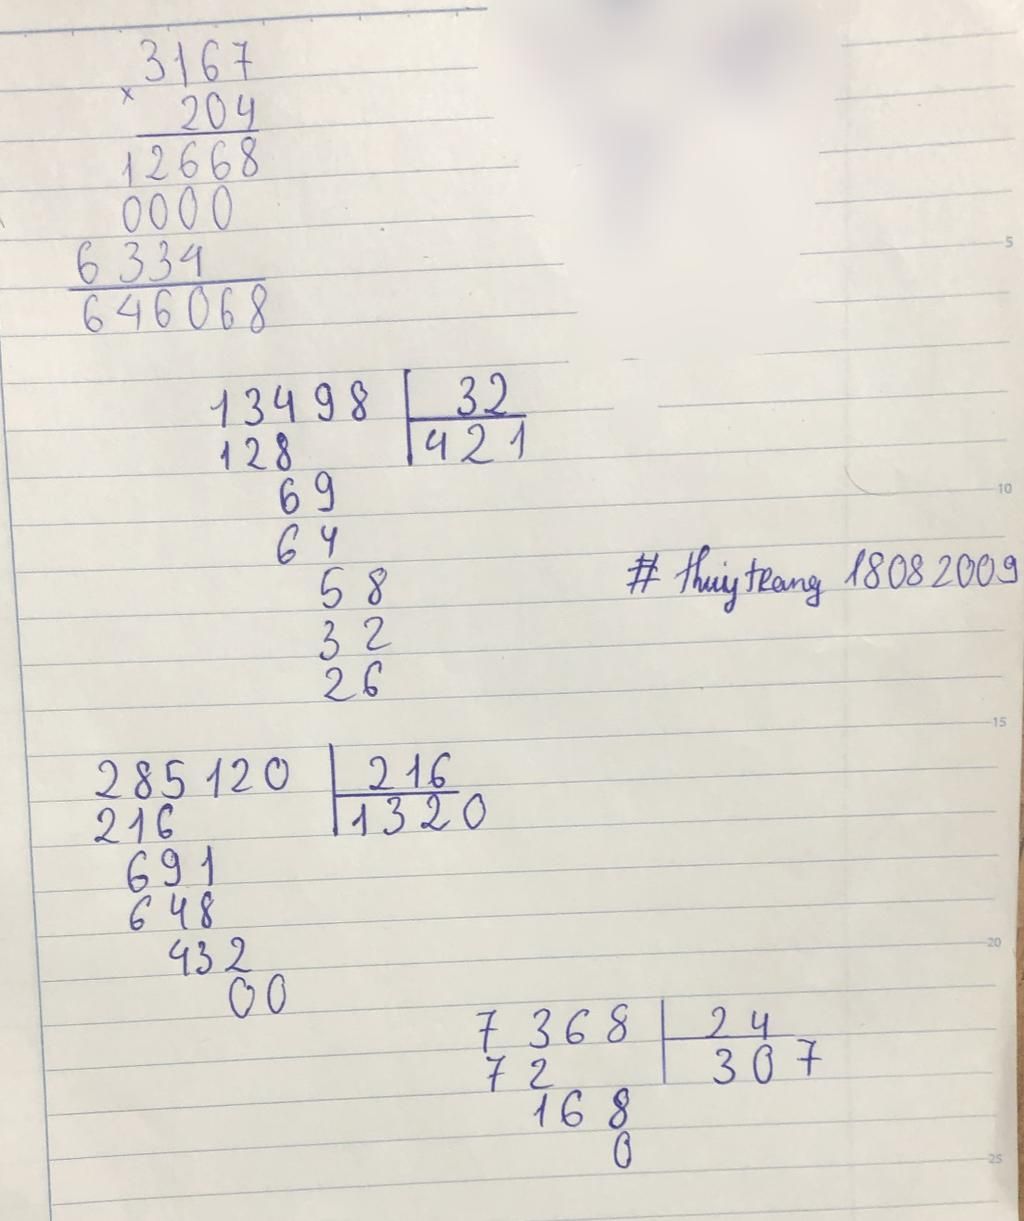 3167
×
204
12668
0000
6334
646068
13498 32
128 421
69
64
58
32
26
# thuytrang 18082009
285120 216
216 1320
691
648
432
00
7368 24
72 307
168
0
5
10
15
20
25